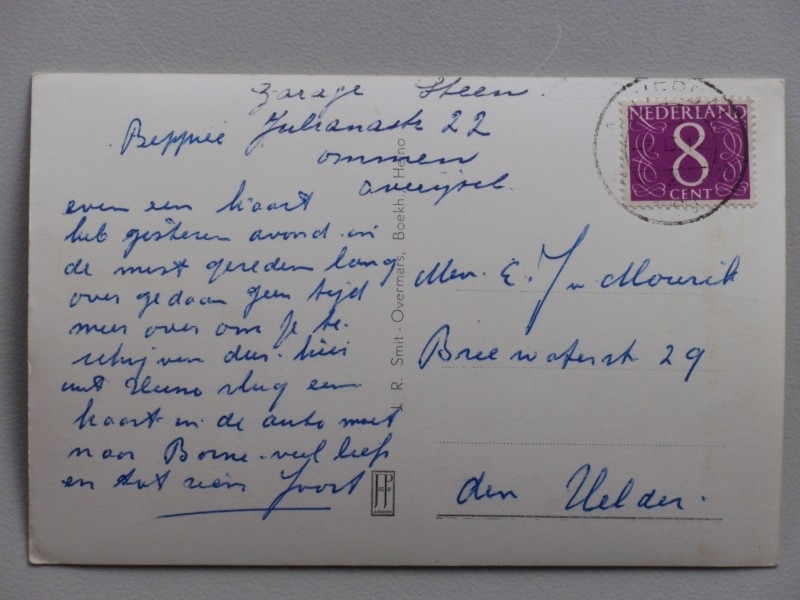 Garage Steen.
Beppie Julianastr 22
ommen
overijsel.
even een kaart
heb gisteren avond in
de mist gereden lang
over gedaan geen tijd
meer over om je te
schijven dus hier
uit Heino vlug een
kaart in de auto moet
naar Borne veel liefs
en tot ziens Joost
J. R. Smit - Overmars, Boekh Heino
NEDERLAND
8
CENT
Mevr. E. J v Mourik
Breewaterstr 29
den Helder.
JP